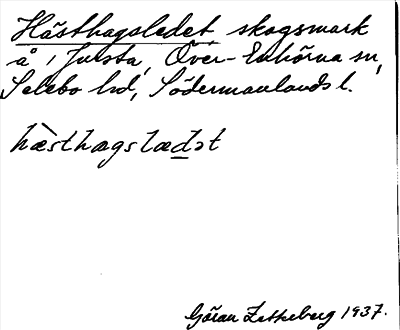 Hästhagsledet, skogsmark
å Justa, Över-Enhörna sn,
Selebo hd, Södermanlands l.
hæ̀sthagslæde̲t
Göran Zetterberg 1937.